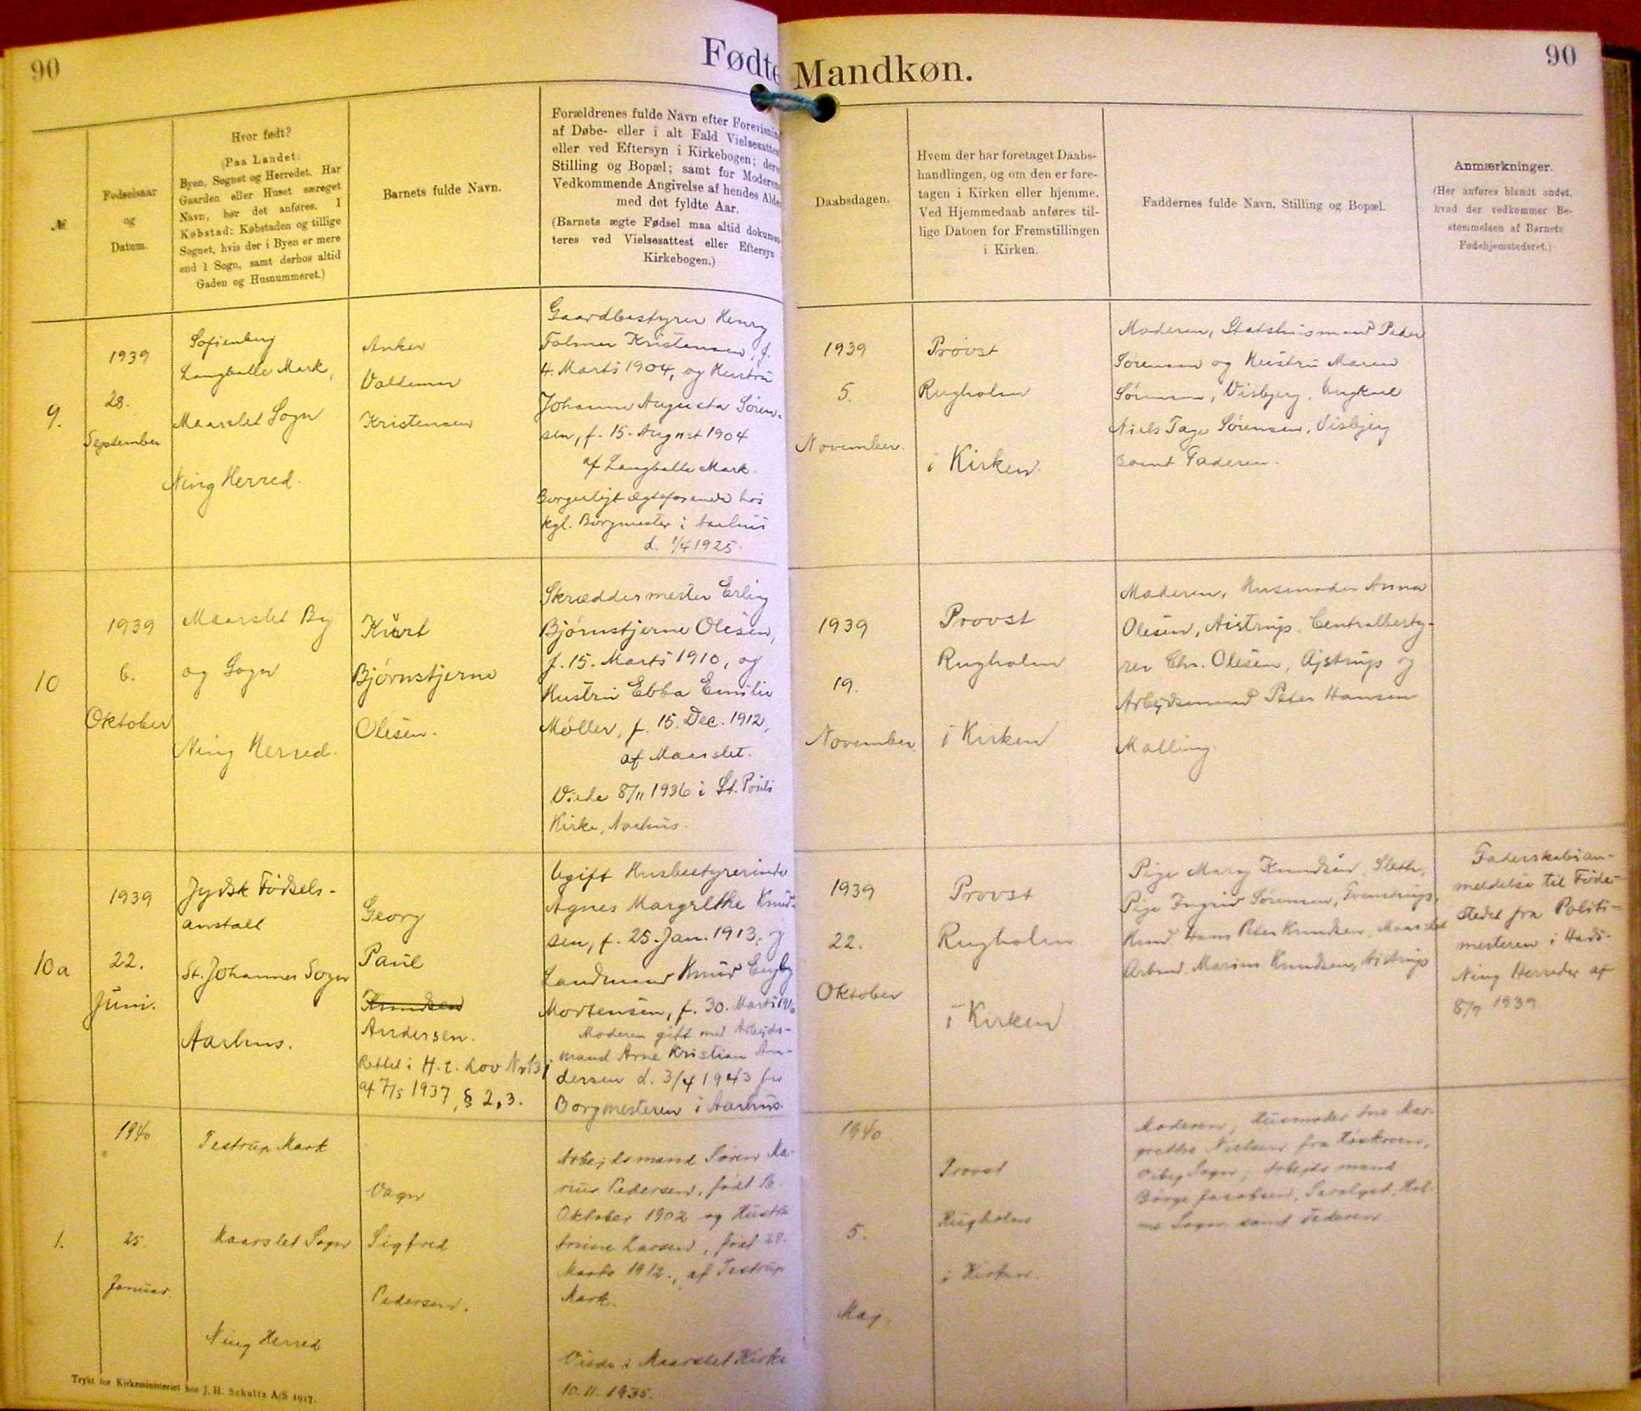 90
Fødte
Mandkøn.
90
№
Fødselsaar
og
Datum.
Hvor født?
(Paa Landet:
Byen, Sognet og Herredet. Har
Gaarden eller Huset særeget
Navn, bør det anføres. I
Købstad: Købstaden og tillige
Sognet, hvis der i Byen er mere
end 1 Sogn, samt derhos altid
Gaden og Husnummeret.)
Barnets fulde Navn.
Forældrenes fulde Navn efter Forevisning
af Døbe- eller i alt Fald Vielsesattest
eller ved Eftersyn i Kirkebogen; deres
Stilling og Bopæl; samt for Moderens
Vedkommende Angivelse af hendes Alder
med det fyldte Aar.
(Barnets ægte Fødsel maa altid dokumen-
teres ved Vielsesattest eller Eftersyn
Kirkebogen.)
Daabsdagen.
Hvem der har foretaget Daabs-
handlingen, og om den er fore-
tagen i Kirken eller hjemme.
Ved Hjemmedaab anføres til-
lige Datoen for Fremstillingen
i Kirken.
Faddernes fulde Navn, Stilling og Bopæl.
Anmærkninger.
(Her anføres blandt andet,
hvad der vedkommer Be-
stemmelsen af Barnets
Fødehjemstedsret.)
9.
1939
28.
September
Sofienberg
Langballe Mark,
Maarslet Sogn
Ning Herred.
Anker
Valdemar
Kristensen
Gaardbestyrer Henry
Folmer Kristensen, f.
4. Marts 1904, og Hustru
Johanne Augusta Søren-
sen, f. 15. August 1904
af Langballe Mark.
Borgerligt ægteforenede hos
kgl. Borgmester i Aarhus
d. 1/4 1925.
1939
5.
November.
Provst
Rugholm
i Kirken.
Moderen, Statshusmand Peder
Sørensen og Hustru Maren
Sørensen, Visbjerg, Ungkarl
Niels Tage Sørensen, Visbjerg
samt Faderen.
10
1939
6.
Oktober
Maarslet By
og Sogn
Ning Herred.
Kurt
Bjørnstjerne
Olesen.
Skræddermester Erling
Bjørnstjerne Olesen,
f. 15. Marts 1910, og
Hustru Ebba Emilie
Møller, f. 15. Dec. 1912,
af Maarslet.
Viede 8/11 1936 i St. Pouls
Kirke, Aarhus.
1939
19.
November
Provst
Rugholm
i Kirken
Moderen, Husmoder Anna
Olesen, Aistrup. Centralbesty-
rer Chr. Olesen, Ajstrup og
Arbejdsmand Peter Hansen
Malling.
10a
1939
22.
Juni.
Jydsk Fødsels-
anstalt
St. Johannes Sogn
Aarhus.
Georg
Paul
Knudsen
Andersen.
Rettet i H. t. Lov Nr 131
af 7/5 1937, § 2,3.
Ugift Husbestyrerinde
Agnes Margrethe Knud-
sen, f. 25. Jan. 1913, og
Landmand Knud Engby
Mortensen, f. 30. Marts 1916
Moderen gift med Arbejds-
mand Arne Kristian An-
dersen d. 3/4 1943 for
Borgmesteren i Aarhus.
1939
22.
Oktober
Provst
Rugholm
i Kirken
Pige Mary Knudsen, Sleth,
Pige Ingrid Sørensen, Tranekjær,
Knud Hans Peter Knudsen, Maarslet
Arbmd. Marius Knudsen, Aistrup
Faderskabsan-
meldelse til Føde-
stedet fra Politi-
mesteren i Hads-
Ning Herreder af
8/7 1939
1.
1940
25.
Januar.
Testrup Mark
Maarslet Sogn
Ning Herred
Vagn
Sigfred
Pedersen.
Arbejdsmand Søren Ma-
rius Pedersen, født 16.
Oktober 1902 og Hustru
Larsen, født 28.
Marts 1912., af Testrup
Mark.
Viede i Maarslet Kirke
10.11.1935.
1940
5.
Maj.
Provst
Rugholm
i Kirken.
Moderen, Husmoder Ane Mar-
grethe Nielsen fra
Sogn; Arbejdsmand
Børge Jacobsen, Hol-
me Sogn samt Faderen
Trykt for Kirkeministeriet hos J. H. Schultz A/S 1917.